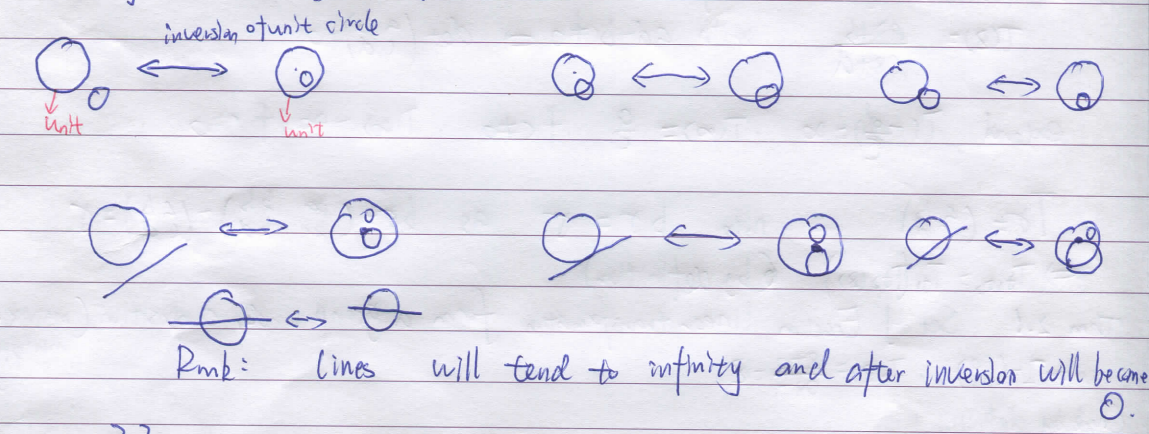 inversion of unit circle
unit
unit
Rmk: lines will tend to infinity and after inversion will become
0.